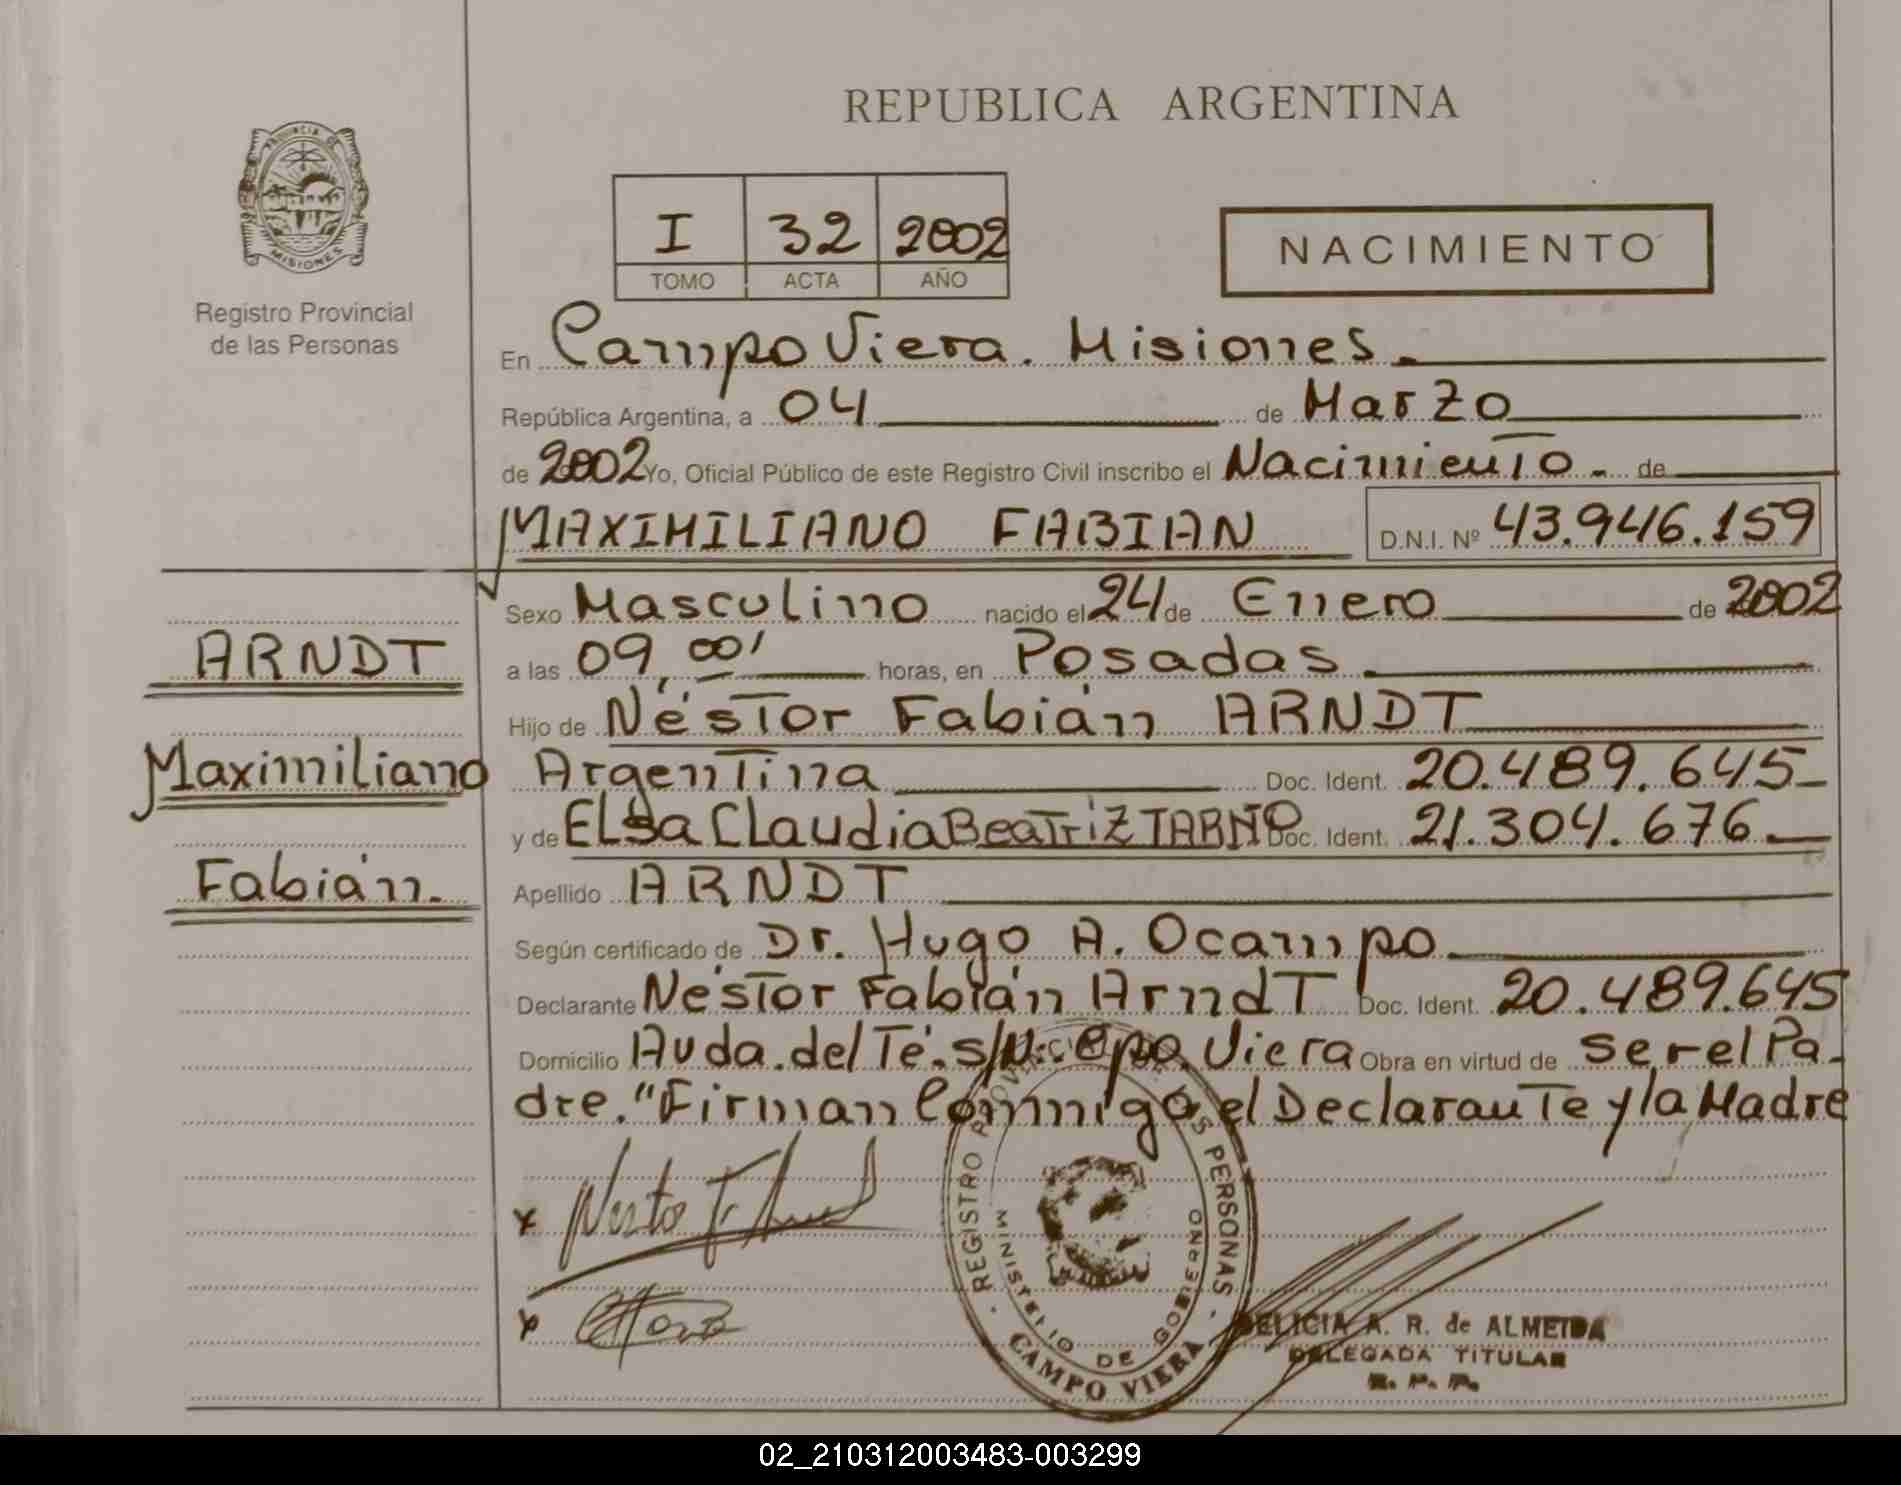 REPUBLICA ARGENTINA
PROVINCIA DE
MISIONES
Registro Provincial
de las Personas
I 32 2002
TOMO ACTA AÑO
NACIMIENTO
En Campo Viera. Misiones.
República Argentina, a 04 de Marzo
de 2002 Yo, Oficial Público de este Registro Civil inscribo el Nacimiento. de
MAXIMILIANO FABIAN D.N.I. Nº 43.946.159
Sexo Masculino nacido el 24 de Enero de 2002
a las 09,00' horas, en Posadas
Hijo de Néstor Fabián ARNDT
Argentina Doc. Ident. 20.489.645
y de ELsa CLaudia BeaTriz Doc. Ident. 21.304.676
Apellido ARNDT
Según certificado de Dr. Hugo A. Ocampo
Declarante Néstor Fabián Arndt Doc. Ident. 20.489.645
Domicilio Avda. del Té. s/N. Cpo. Viera Obra en virtud de ser el Pa-
dre. "Firman Conmigo el Declarante y la Madre
ARNDT
Maximiliano
Fabián.
REGISTRO PROVINCIAL DE LAS PERSONAS
MINISTERIO DE GOBIERNO
CAMPO VIERA
DELICIA A. R. de ALMEIDA
DELEGADA TITULAR
R. P. P.
02_210312003483-003299